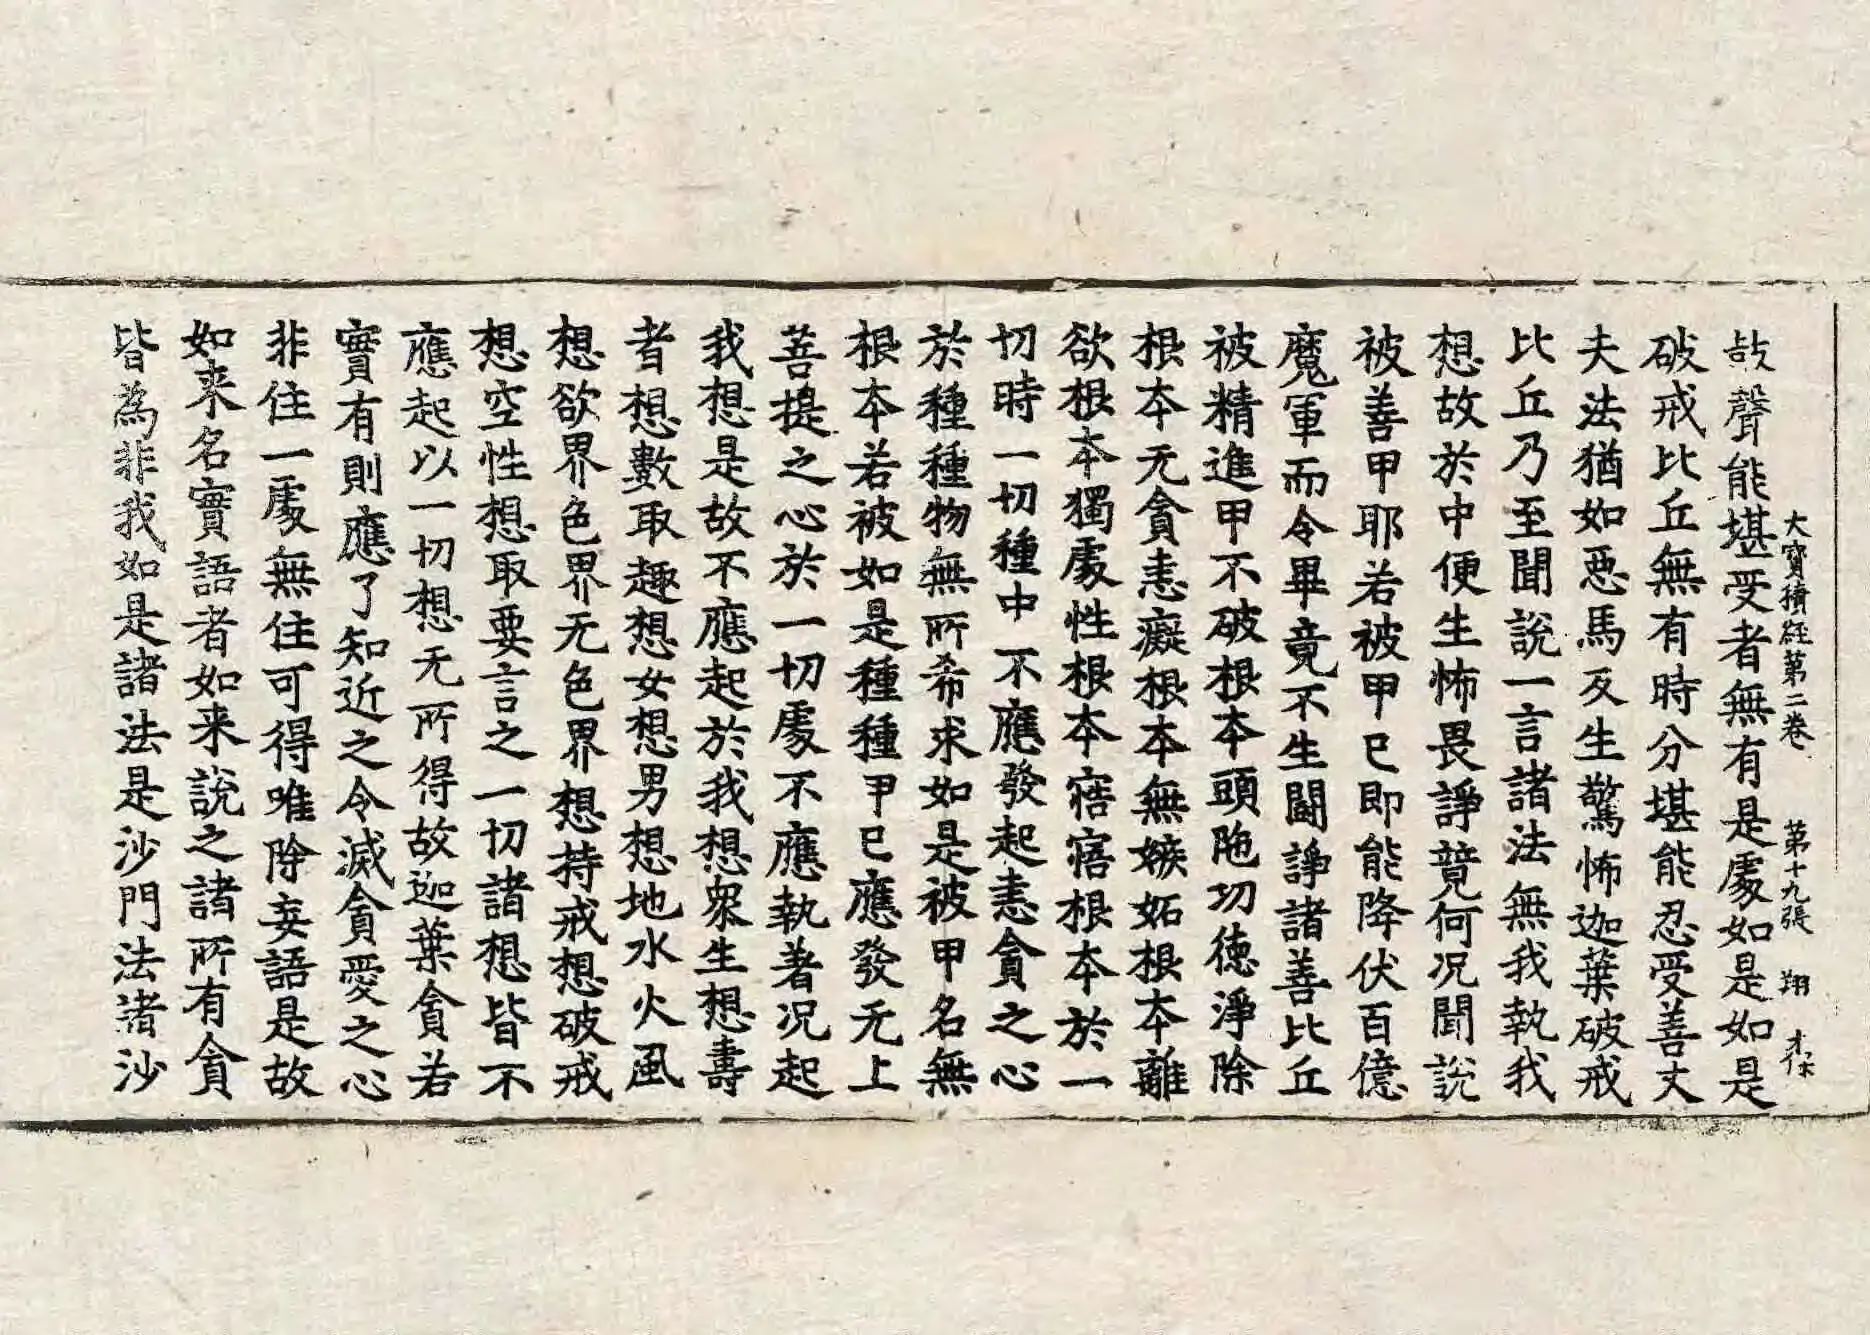 大寶積經第二卷 第十九張 翔
鼓聲能堪受者無有是處如是如是
破戒比丘無有時分堪能忍受善丈
夫法猶如惡馬反生驚怖迦葉破戒
比丘乃至聞說一言諸法無我執我
想故於中便生怖畏諍競何况聞說
被善甲耶若被甲已即能降伏百億
魔軍而令畢竟不生鬪諍諸善比丘
被精進甲不破根本頭陁功德淨除
根本无貪恚癡根本無嫉妬根本離
欲根本獨處性根本寤寤根本於一
切時一切種中不應發起恚貪之心
於種種物無所希求如是被甲名無
根本若被如是種種甲已應發无上
菩提之心於一切處不應執著况起
我想是故不應起於我想衆生想壽
者想數取趣想女想男想地水火風
想欲界色界无色界想持戒想破戒
想空性想取要言之一切諸想皆不
應起以一切想无所得故迦葉貪若
實有則應了知近之令滅貪愛之心
非住一處無住可得唯除妄語是故
如来名實語者如来說之諸所有貪
皆為非我如是諸法是沙門法諸沙